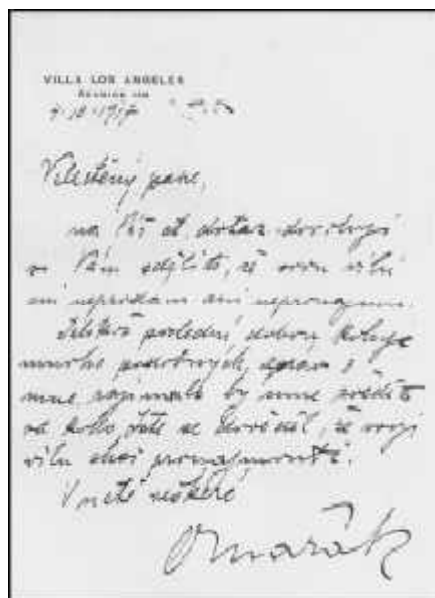 VILLA LOS ANGELES
Velectěný pane,
na Váš ct. dotaz dovoluji
si Vám sděliti, že svou villu
ani neprodám ani nepronajmu.
Jelikož poslední dobou koluje
mnoho podobných zpráv a
mne zajímalo by mne věděti
od koho jste se dověděl, že svoji
villu chci pronajmouti.
V ucté veškeré
Ot. Mařák